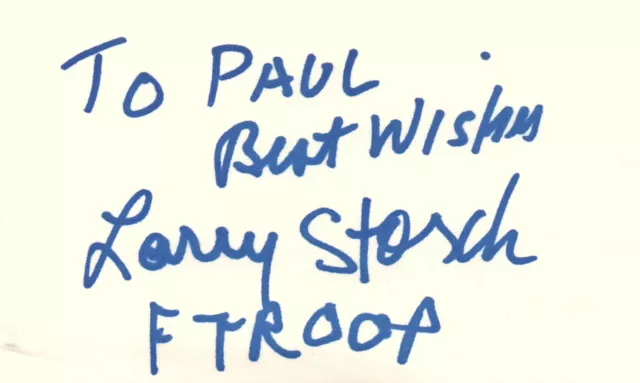 To PAUL
Best Wishes
Larry Storch
F TROOP